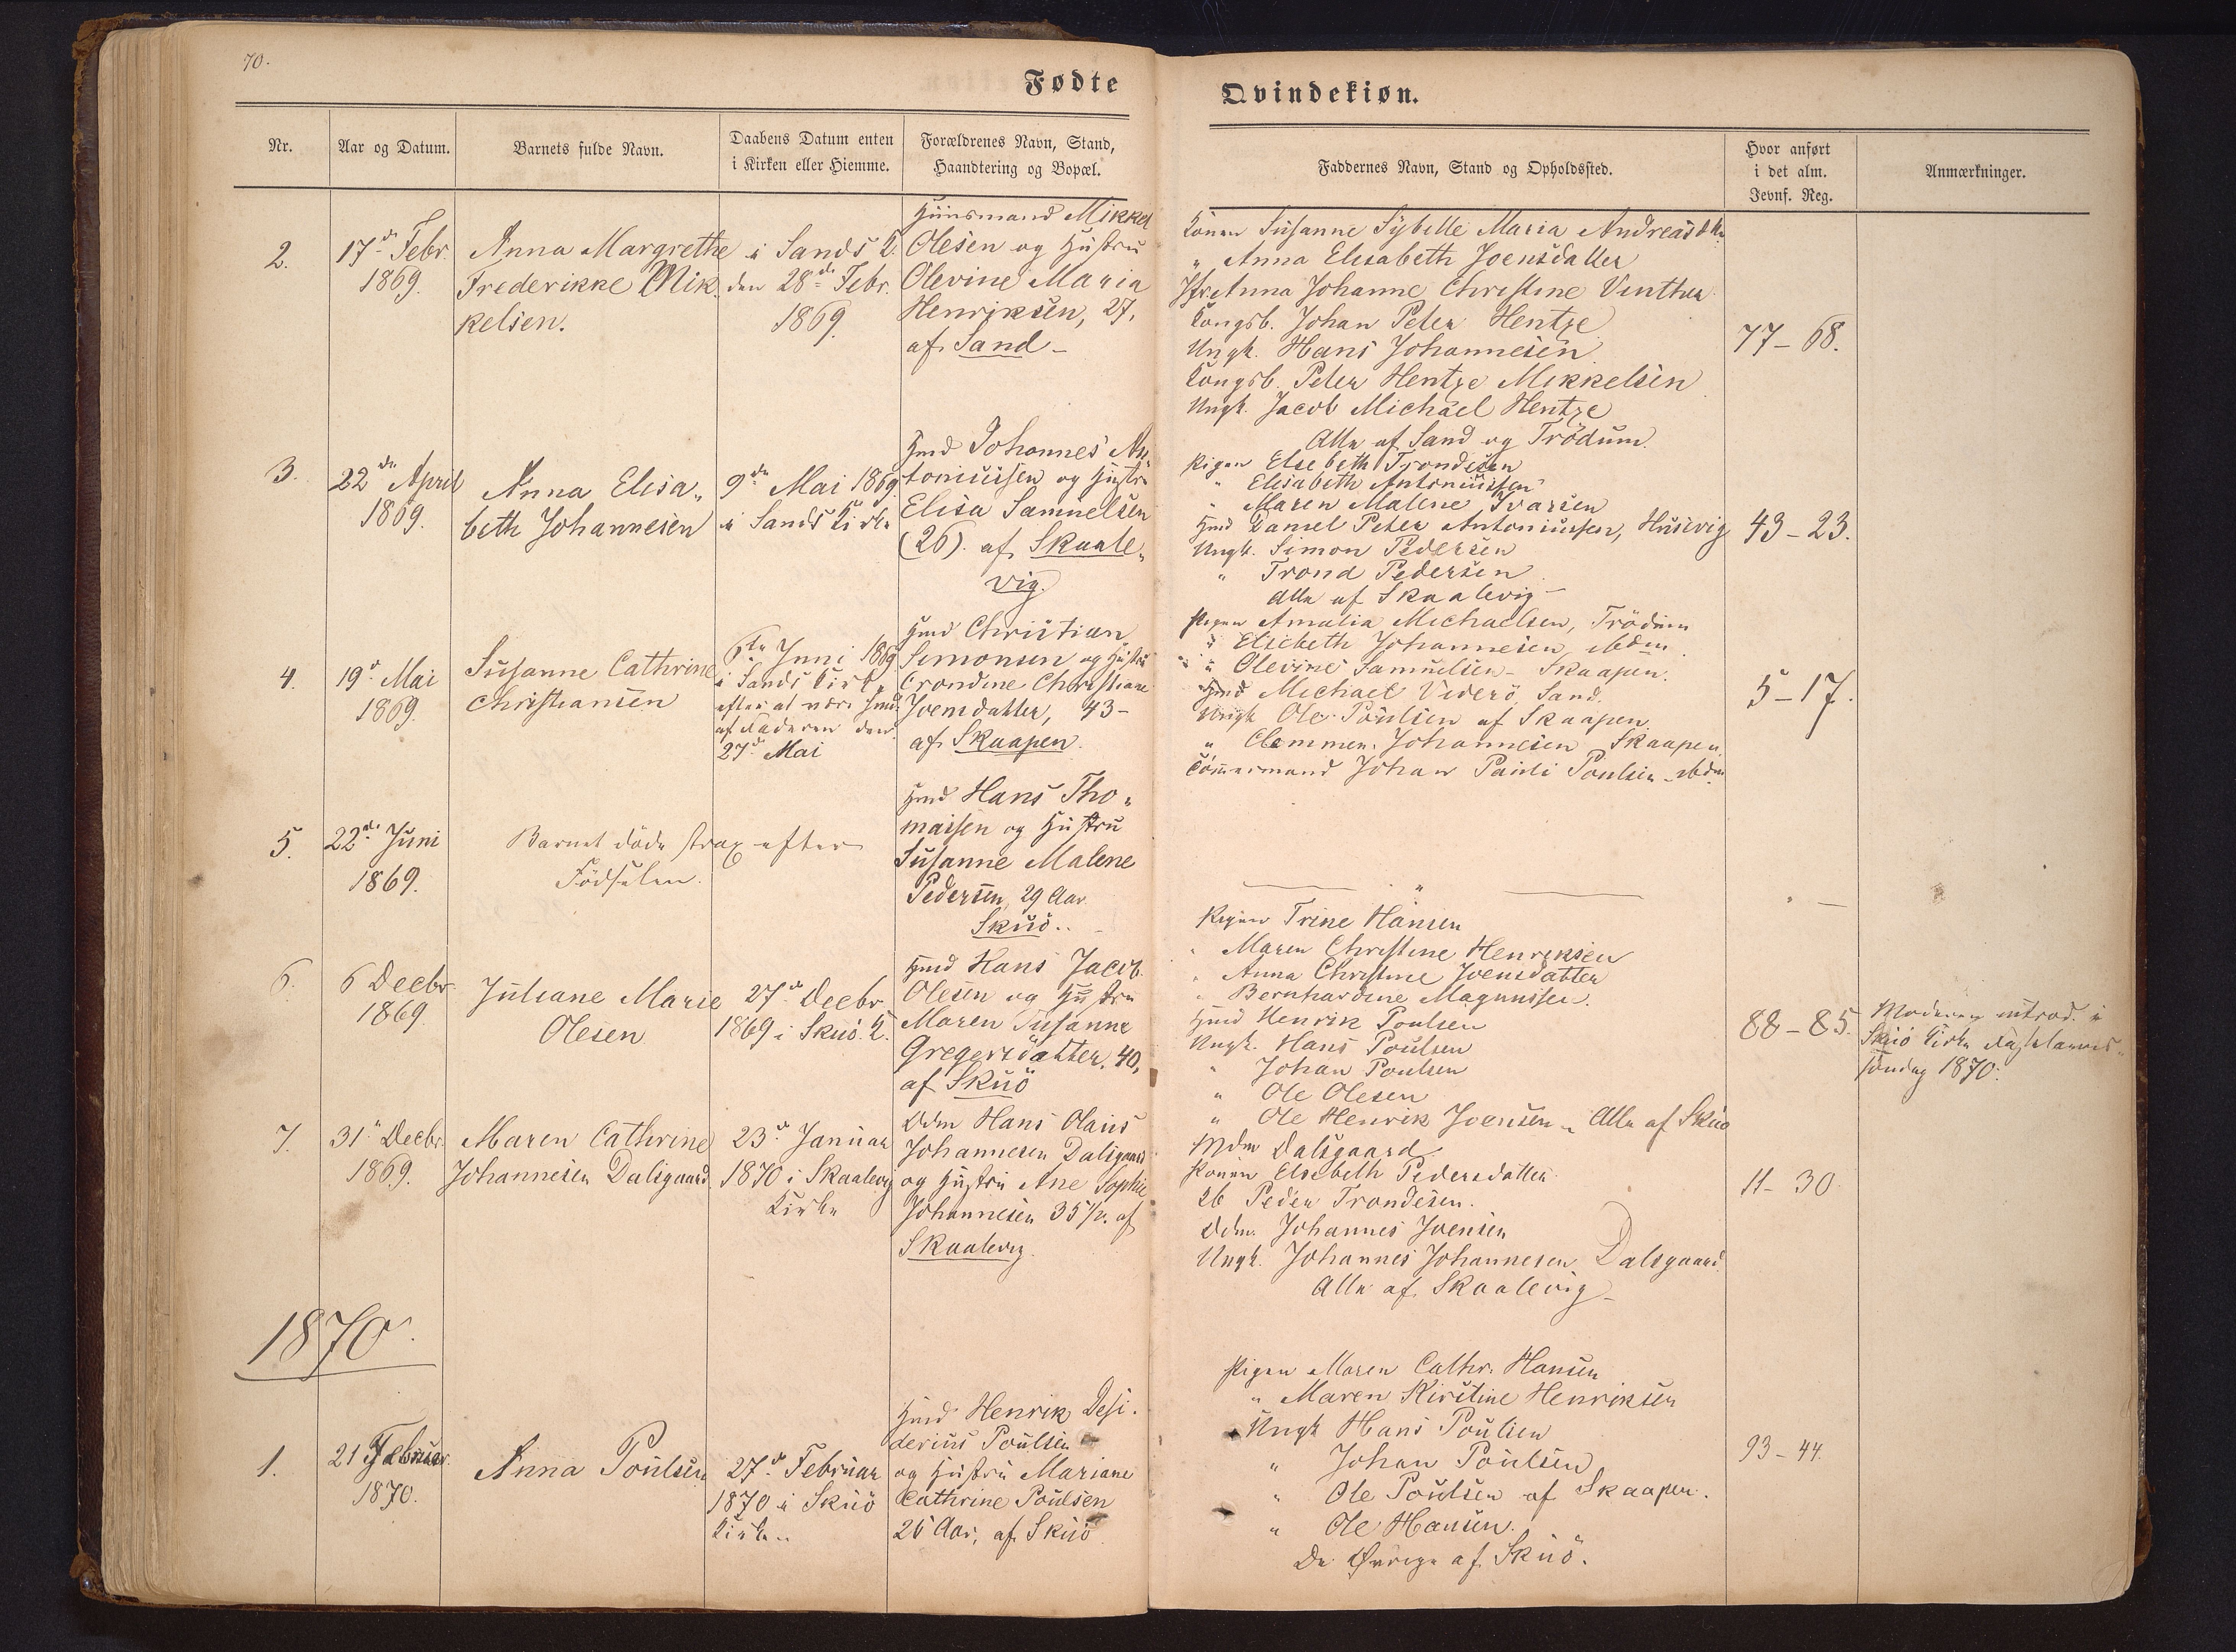 70.
Fødte
Qvindekiøn.
Nr.
Aar og Datum.
Barnets fulde Navn.
Daabens Datum enten
i Kirken eller Hiemme.
Forældrenes Navn, Stand,
Haandtering og Bopæl.
Faddernes Navn, Stand og Opholdssted.
Hvor anført
i det alm.
Jevnf. Reg.
Anmærkninger.
2.
17de Febr.
1869.
Anna Margrethe
Frederikke Mik
kelsen.
i Sands K.
den 28de Febr.
1869.
Huusmand Mikkel
Olesen og Hustru
Olevine Maria
Henriksen, 27,
af Sand
Konen Susanne Sybille Maria Andreasd.
" Anna Elisabeth Joensdatter
Jfr. Anna Johanne Christine Vinther
Kongsb. Johan Peter Hentze
Ungk. Hans Johannesen
Kongsb. Peter Hentze Mikkelsen
Ungk. Jacob Michael Hentze
Alle af Sand og Trödum.
77-68.
3.
22de April
1869.
Anna Elisa"
beth Johannesen
9de Mai 1869
i Sands Kirke
Hmd Johannes An
toniussen og Hustru
Elisa Samuelsen
(26). af Skaale"
vig.
Pigen Elsebeth Trondesen
" Elisabeth Antoniussen
" Maren Malene Ivarsen
Hmd Daniel Peter Antoniussen, Husevig
Ungk. Simon Pedersen
" Trond Pedersen
Alle af Skaalevig
43-23.
4.
19de Mai
1869.
Susanne Cathrine
Christiansen
6te Juni 1869
i Sands Kirke
efter at være hmd.
af Faderen den
27de Mai
Hmd Christian
Simonsen og Hustru
Trondine Christiane
Joensdatter, 43-
af Skaapen.
Pigen Amalia Michaelsen, Trödum
" Elsebeth Johannesen, ibdm
" Olevine Samuelsen - Skaapen.
Hmd Michael Viderö, Sand.
Ungk Ole Poulsen af Skaapen.
" Clemmen Johannesen Skaapen.
Tömmermand Johan Pauli Poulsen - ibdm
5-17.
5.
22de Juni
1869.
Barnet döde strax efter
Födselen.
Hmd Hans Tho"
massen og Hustru
Susanne Malene
Pedersen, 29 Aar
Skuö.
6.
6 Decbr
1869
Juliane Marie
Olesen
27de Decbr
1869 i Skuö K.
Hmd Hans Jacob
Olesen og Hustru
Maren Susanne
Gregersdatter, 40,
af Skuö
Pigen Trine Hansen
" Maren Christine Henriksen
" Anna Christine Joensdatter
" Bernhardine Magnussen.
Hmd Henrik Poulsen
Ungk. Hans Poulsen
" Johan Poulsen
" Ole Olesen
" Ole Henrik Joensen - Alle af Skuö
88-85.
Moderen introd. i
Skuö Kirke
söndag 1870.
7.
31te Decbr.
1869.
Maren Cathrine
Johannesen Dalsgaard.
23de Januar
1870 i Skaalevig
Kirke
Odm Hans Olaus
Johannesen Dalsgaard
og Hustru Ane Sophie
Johannesen 35 1/2. af
Skaalevig.
Mdm Dalsgaard
Konen Elsebeth Pedersdatter
Kb Peder Trondesen.
Odm. Johannes Joensen
Ungk. Johannes Johannesen Dalsgaard
Alle af Skaalevig
11-30.
1870.
1.
21 Februar
1870.
Anna Poulsen
27de Februar
1870 i Skuö
Kirke
Hmd Henrik Desi"
derius Poulsen
og Hustru Mariane
Cathrine Poulsen
26 Aar, af Skuö
Pigen Maren Cathr. Hansen
" Maren Kirstine Henriksen
Ungk Hans Poulsen
" Johan Poulsen
" Ole Poulsen af Skaapen.
" Ole Hansen.
De Øvrige af Skuö.
93-44.